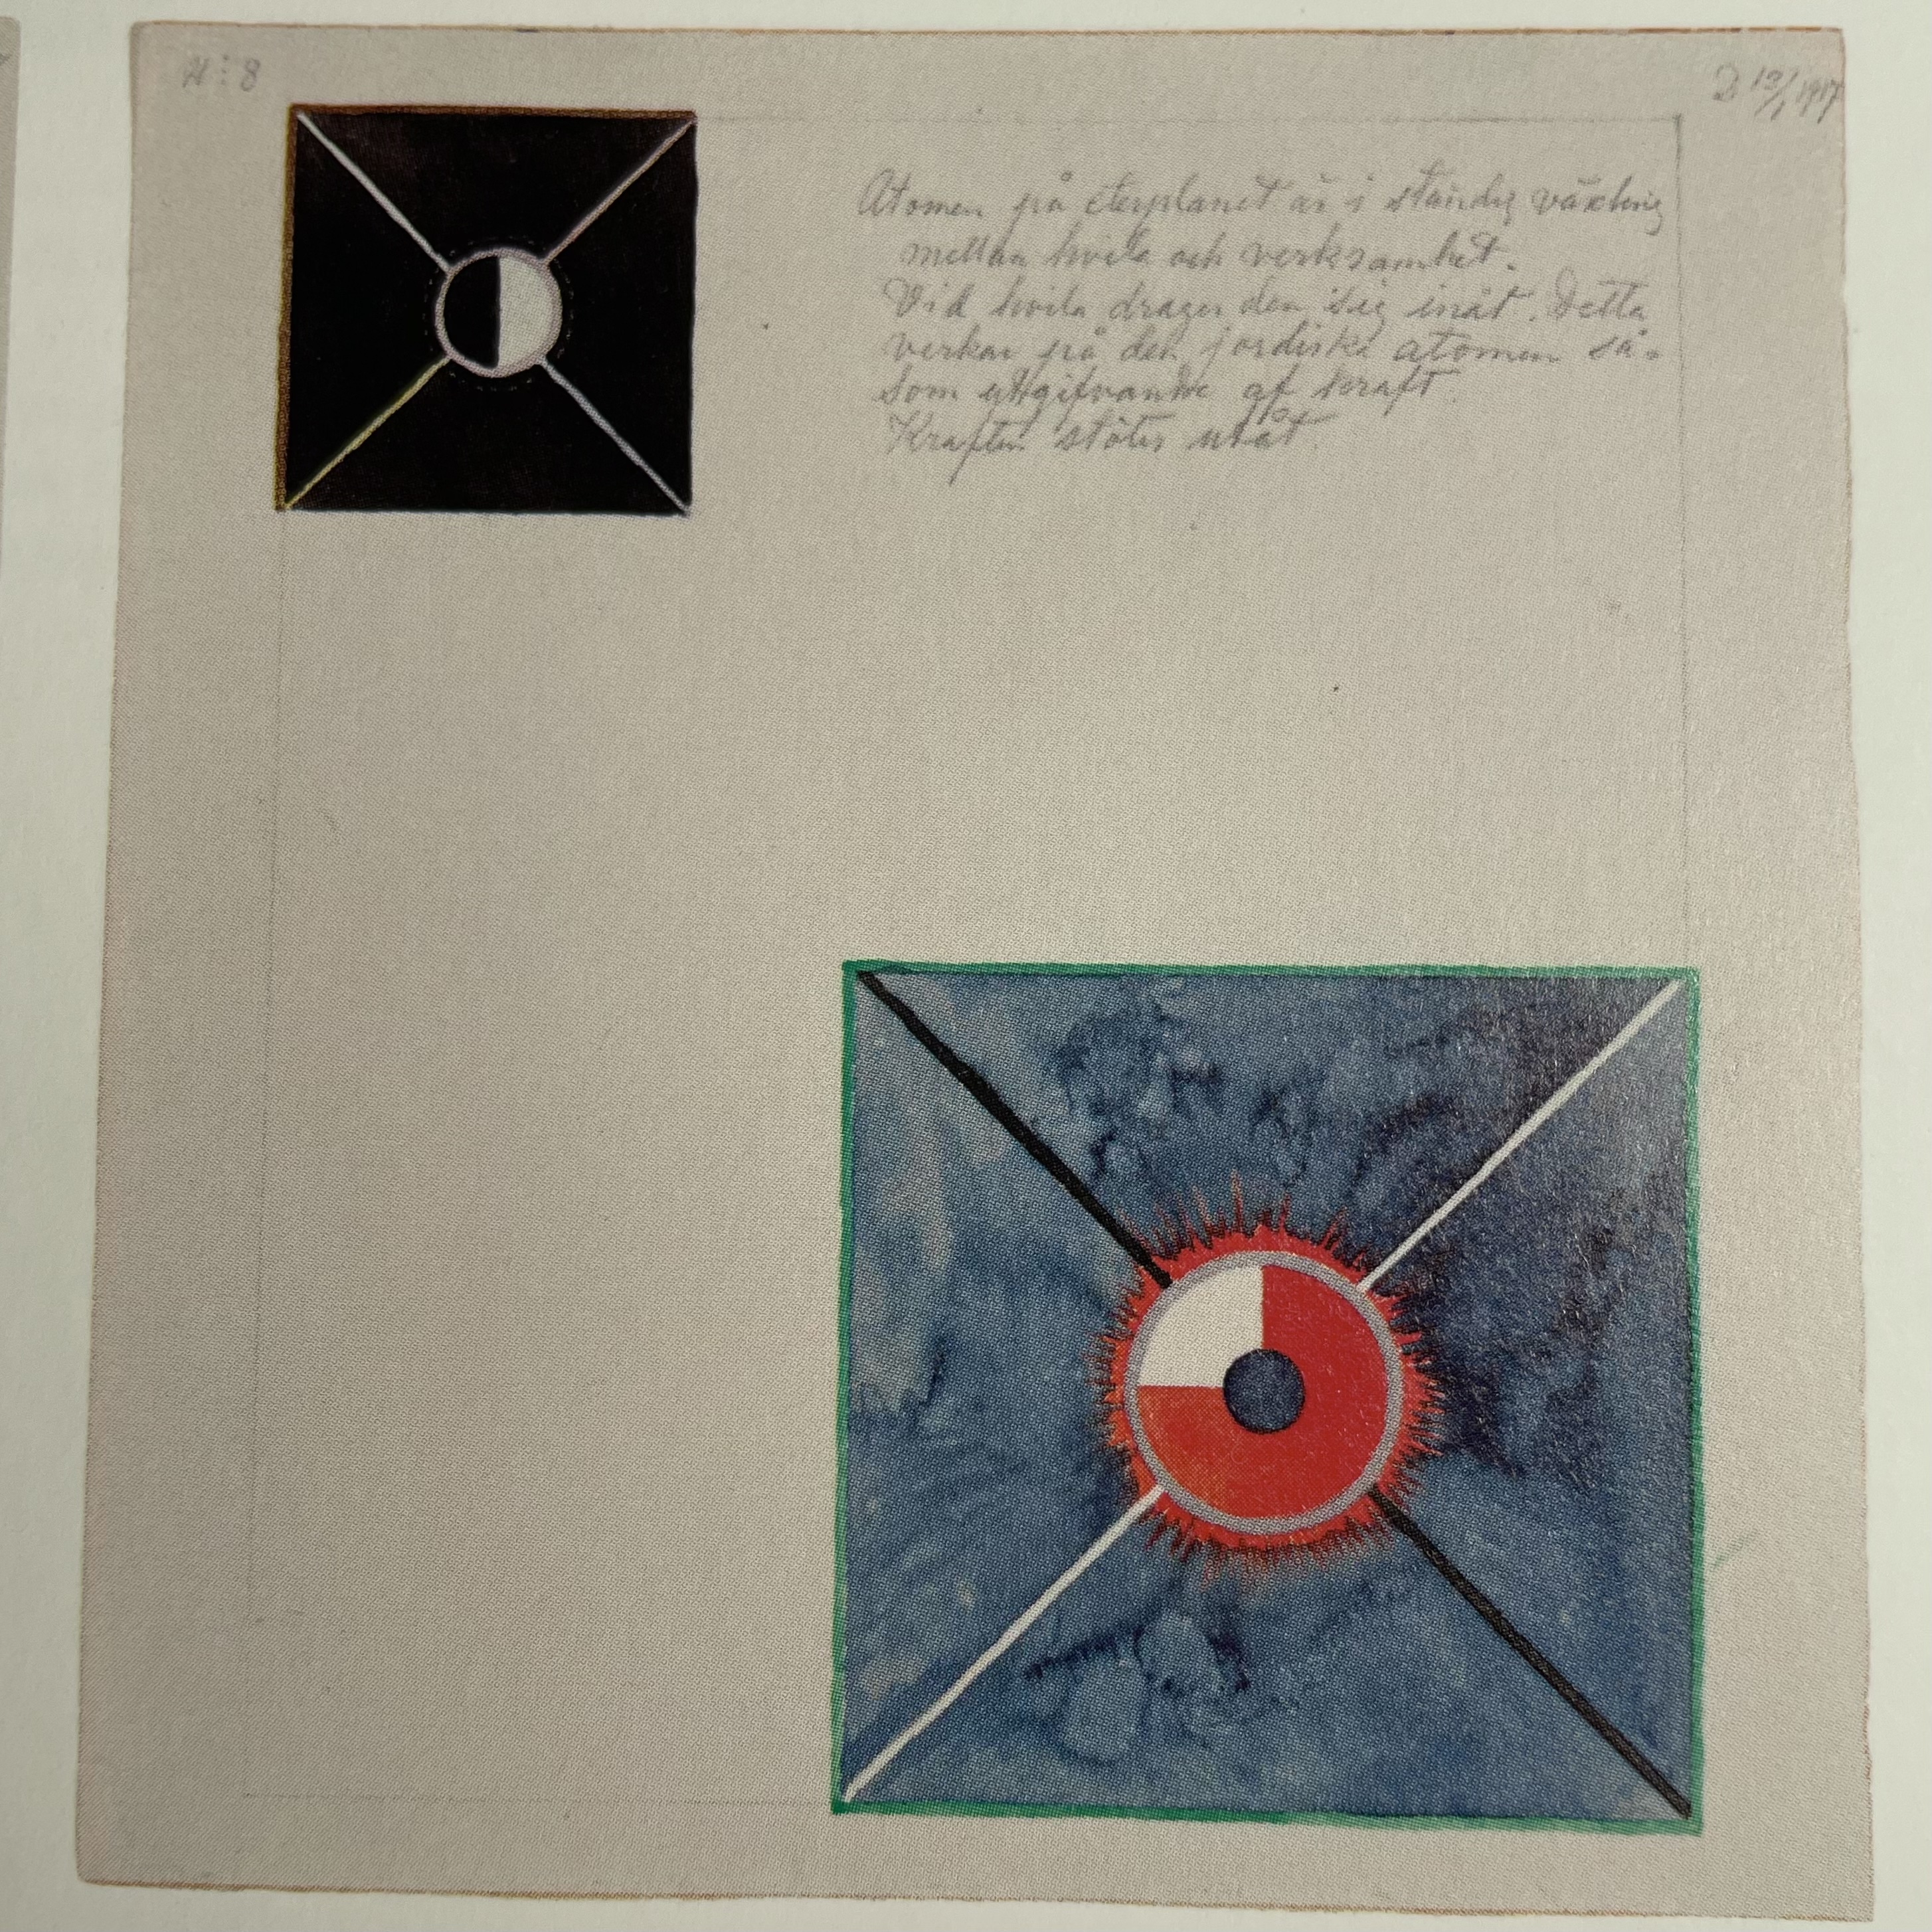 N: 8
D 12/1 1917
Atomen på eterplanet är i ständig växling
mellan hvila och verksamhet.
Vid hvila drager den sig inåt. Detta
verkar på den jordiska atomen så-
som utgifvande af kraft.
Kraften stötes utåt.